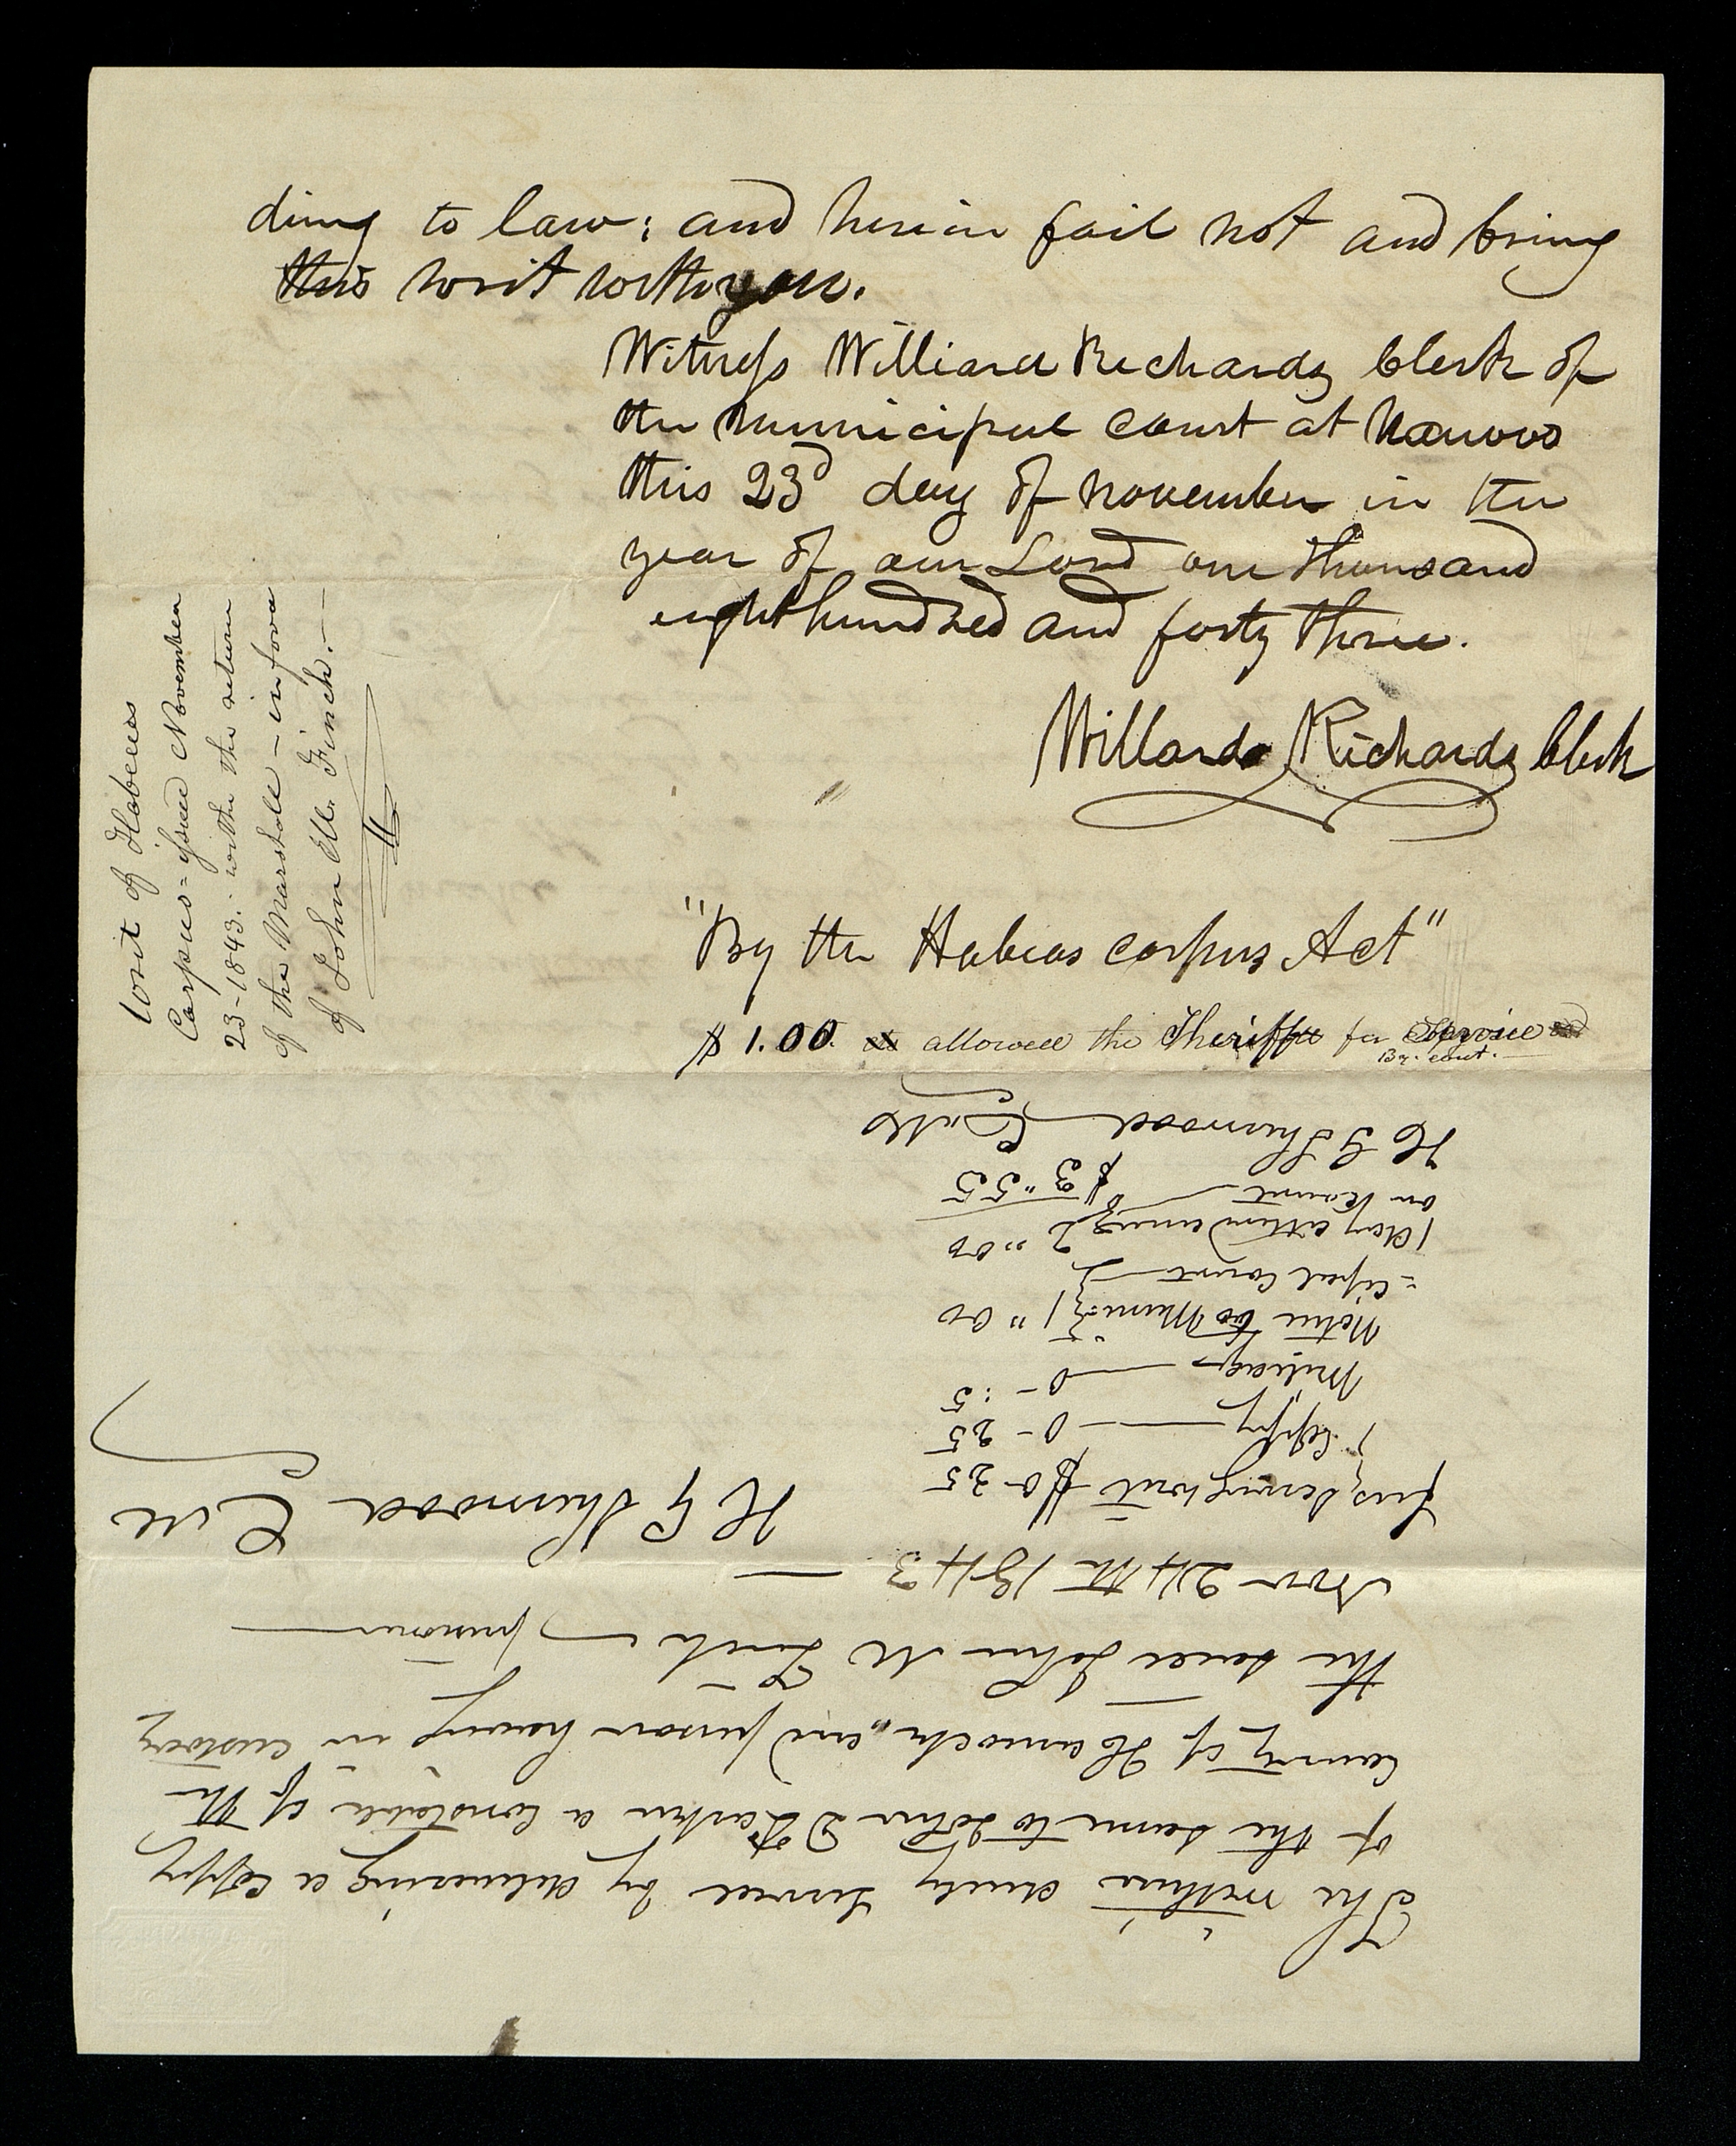 ding to law; and herein fail not and bring
this writ with you.
Witness Williard Richards Clerk of
the municipal court at Nauvoo
this 23d day of november in the
year of our Lord one thousand
eight hundred and forty three.
Willard Richards Clerk
"By the Habeas corpus Act"
$ 1.00 allowed the Sheriff for Service
By. cout.
Writ of Habeus
Corpus = Issued November
23-1843.- with the return
of the Marshall - in favor
of John M. Finch.
The within duly served by delivering a Coppy
of the same to John D Parker a Constable of the
County of Hancock, and person having in custody
the said John M Finch prisoner
Nov 24th 1843
H G Sherwood
fees Serving writ $0-25
1 Coppy 0-25
Mileage 0-:5
Notice to Muni-
=cipal Court 1"00
1 day attendance 2"00
on Court
$3"55
H G Sherwood